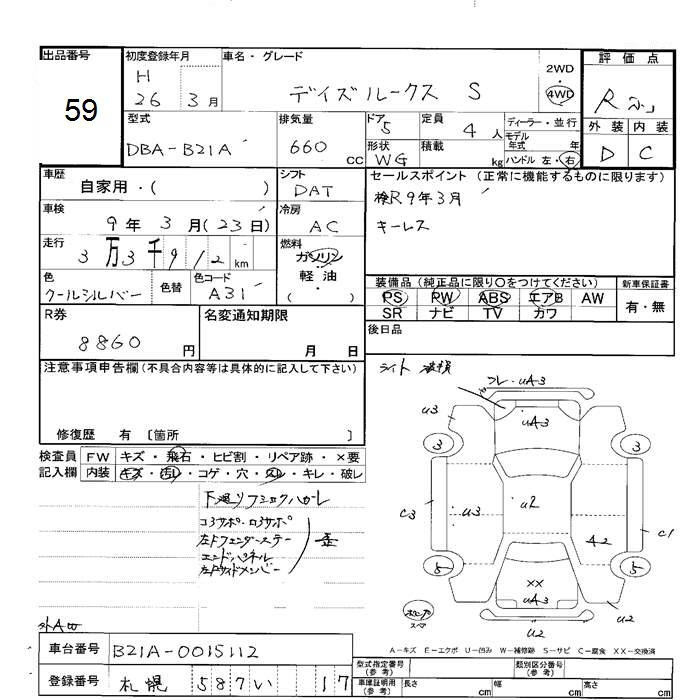 出品番号 初度登録年月 車名・グレード 評価点
59
H 26 3月 デイズルークス S 2WD・4WD
R
型式 排気量 ドア 定員 ディーラー・並行 外装 内装
DBA-B21A 660 CC 5 4人 モデル年式 年 D C
形状 WG 積載 kg ハンドル 左・右
車歴 シフト セールスポイント (正常に機能するものに限ります)
自家用・( ) DAT 検R9年3月
車検 冷房 キーレス
9年 3月(23日) AC
走行 燃料
3万3千912km ガソリン・軽油・( )
色 色替 色コード 装備品(純正品に限り○をつけてください) 新車保証書
クールシルバー A31 PS PW ABS エアB AW 有・無
SR ナビ TV カワ
R券 名変通知期限 後日品
8860円 月 日
注意事項申告欄(不具合内容等は具体的に記入して下さい)
修復歴 有 〔箇所 〕
検査員記入欄 FW キズ・飛石・ヒビ割・リペア跡・×要
内装 キズ・汚レ・コゲ・穴・スレ・キレ・破レ
ライト 破損
フレ・UA3
UA3
U3
3 3
C3 U3 U2 C1
A2
5 5
XX
UA3
U2 U2
スペア
左Fフェンダーステー
エンドパネル
左Fサイドメンバー
歪
外AW
A-キズ E-エクボ U-凹み W-補修跡 S-サビ C-腐食 XX-交換済
車台番号 B21A-0015112
登録番号 札幌 587 い 17
型式指定番号(参考) 類別区分番号(参考)
車庫証明用(参考) 長さ cm 幅 cm 高さ cm